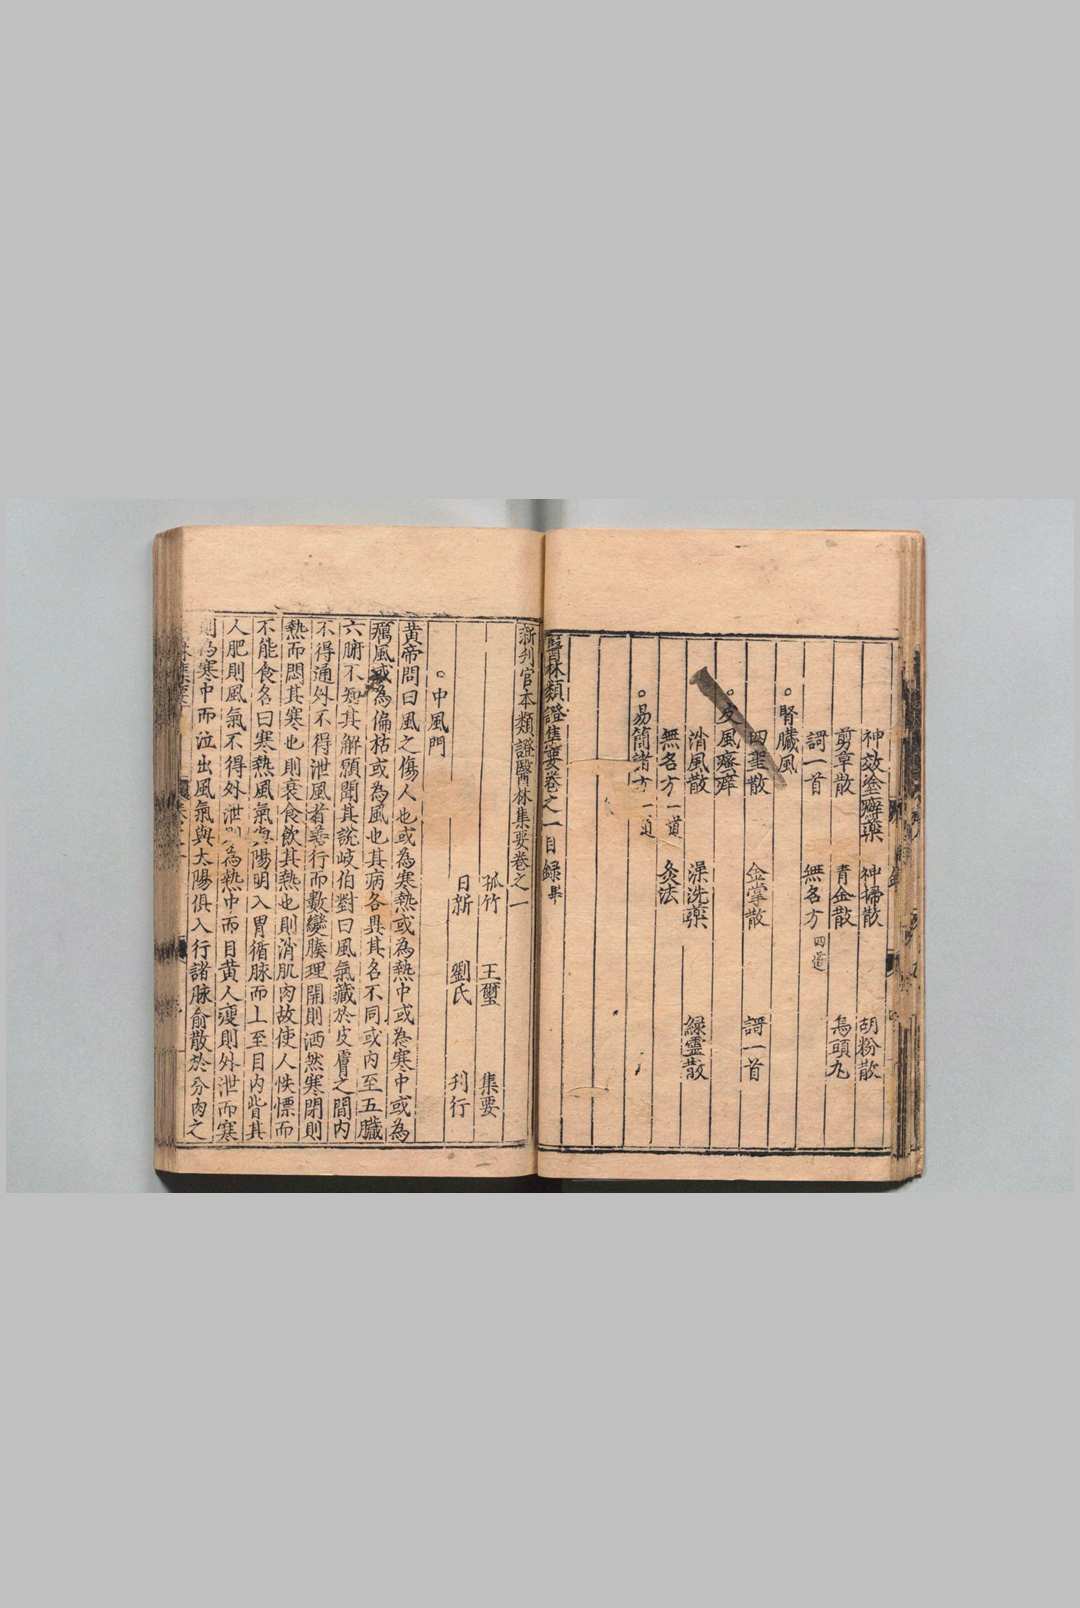 神效塗癬藥 神掃散 胡粉散
剪草散 青金散 烏頭丸
謌一首 無名方四道
。腎臟風
四聖散 金掌散 謌一首
。皮風癮癢
消風散 澡洗藥 綠雲散
無名方一道 灸法
。易簡諸方一道
醫林類證集要卷之一目録畢
新刋官本類證醫林集要卷之一
孤竹 王璽 集要
日新 劉氏 刋行
。中風門
黄帝問曰風之傷人也或為寒熱或為熱中或為寒中或為
癘風或為偏枯或為風也其病各異其名不同或内至五臟
六腑不知其解願聞其說岐伯對曰風氣藏於皮膚之間内
不得通外不得泄風者善行而數變腠理開則洒然寒閉則
熱而悶其寒也則衰食飲其熱也則消肌肉故使人怢慄而
不能食名曰寒熱風氣與陽明入胃循脉而上至目内眥其
人肥則風氣不得外泄則為熱中而目黄人瘦則外泄而寒
則為寒中而泣出風氣與太陽俱入行諸脉俞散於分肉之